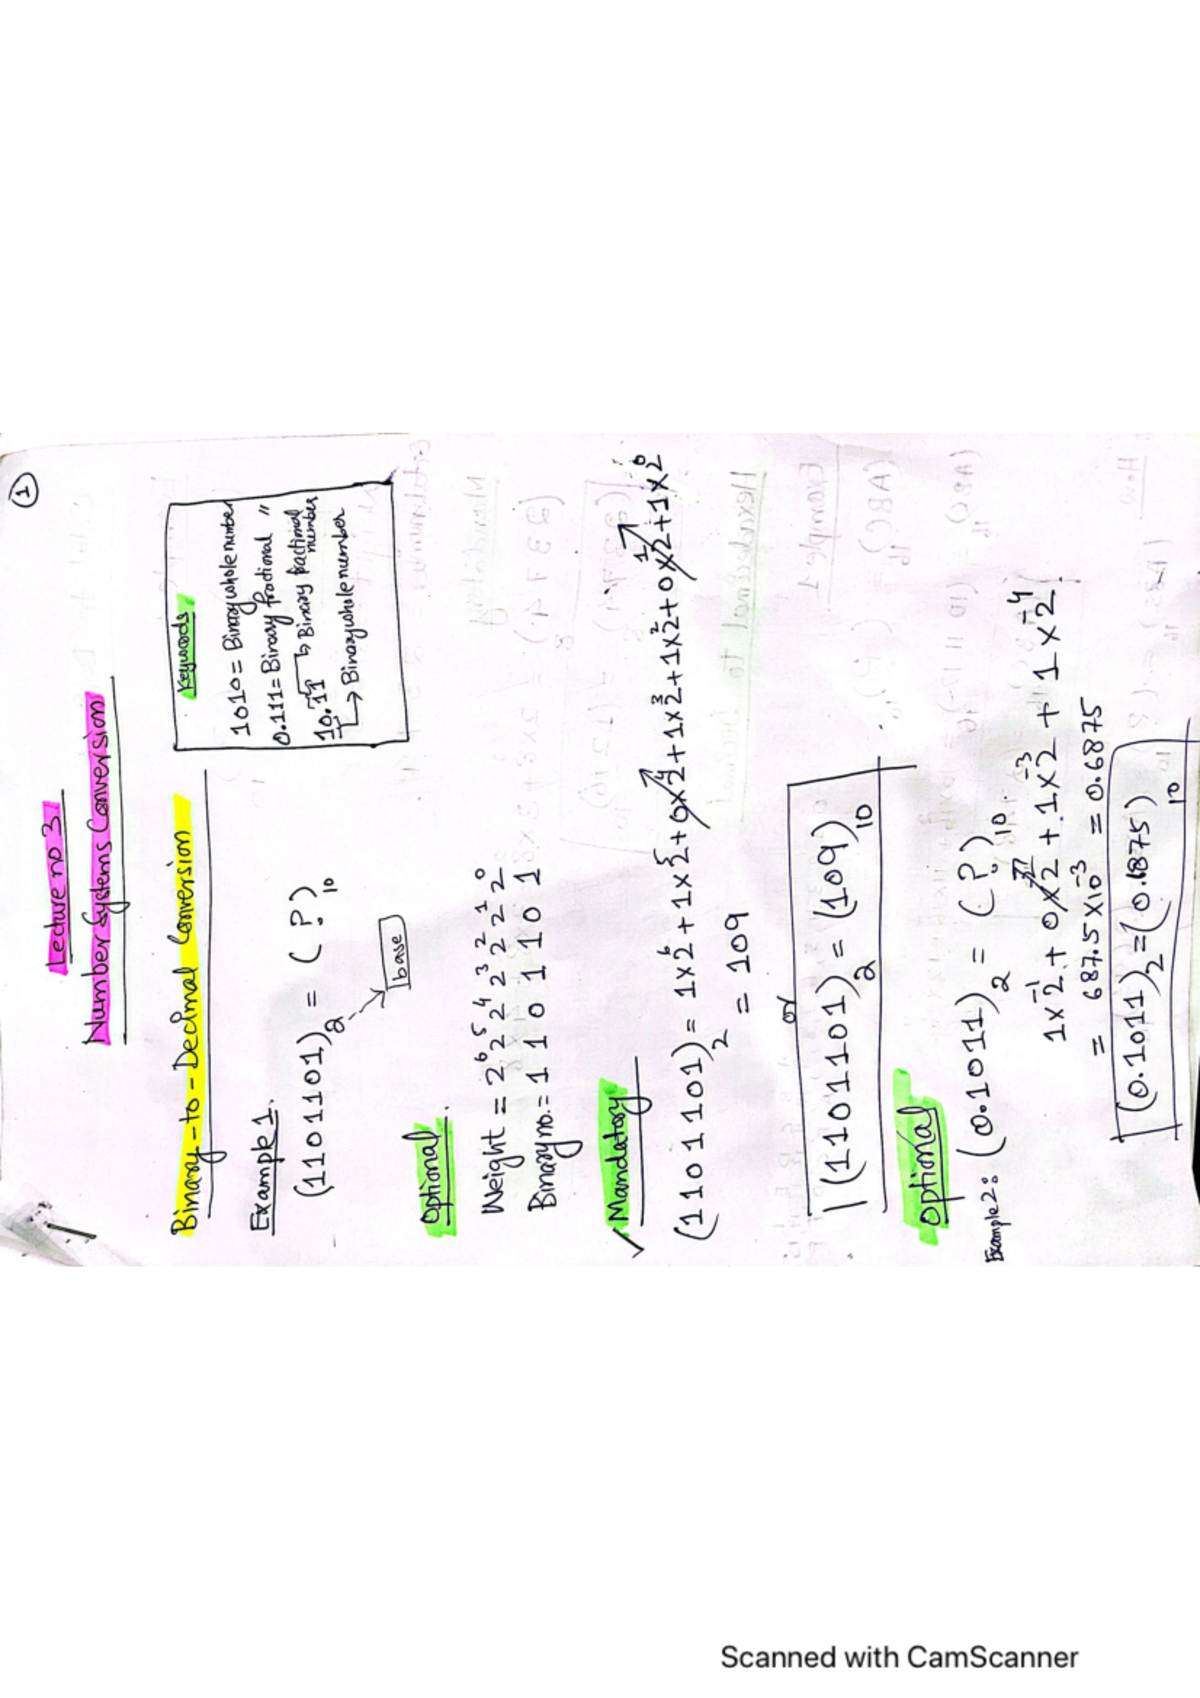 1
Lecture no 3
Number Systems Conversion
Binary-to-Decimal Conversion
Keywords
1010 = Binary whole number
0.111 = Binary fractional "
10.11 → Binary fractional number
→ Binary whole number
Example 1.
(1101101)₂ = (?)₁₀
base
Optional.
Weight = 2⁶ 2⁵ 2⁴ 2³ 2² 2¹ 2⁰
Binary no. = 1 1 0 1 1 0 1
✓ Mandatory
(1101101)₂ = 1x2⁶ + 1x2⁵ + 0x2⁴ + 1x2³ + 1x2² + 0x2¹ + 1x2⁰
= 109
or
(1101101)₂ = (109)₁₀
Optional
Example 2: (0.1011)₂ = (?)₁₀.
1x2⁻¹ + 0x2⁻² + 1x2⁻³ + 1x2⁻⁴
= 687.5x10⁻³ = 0.6875
(0.1011)₂ = (0.1875)₁₀
Scanned with CamScanner